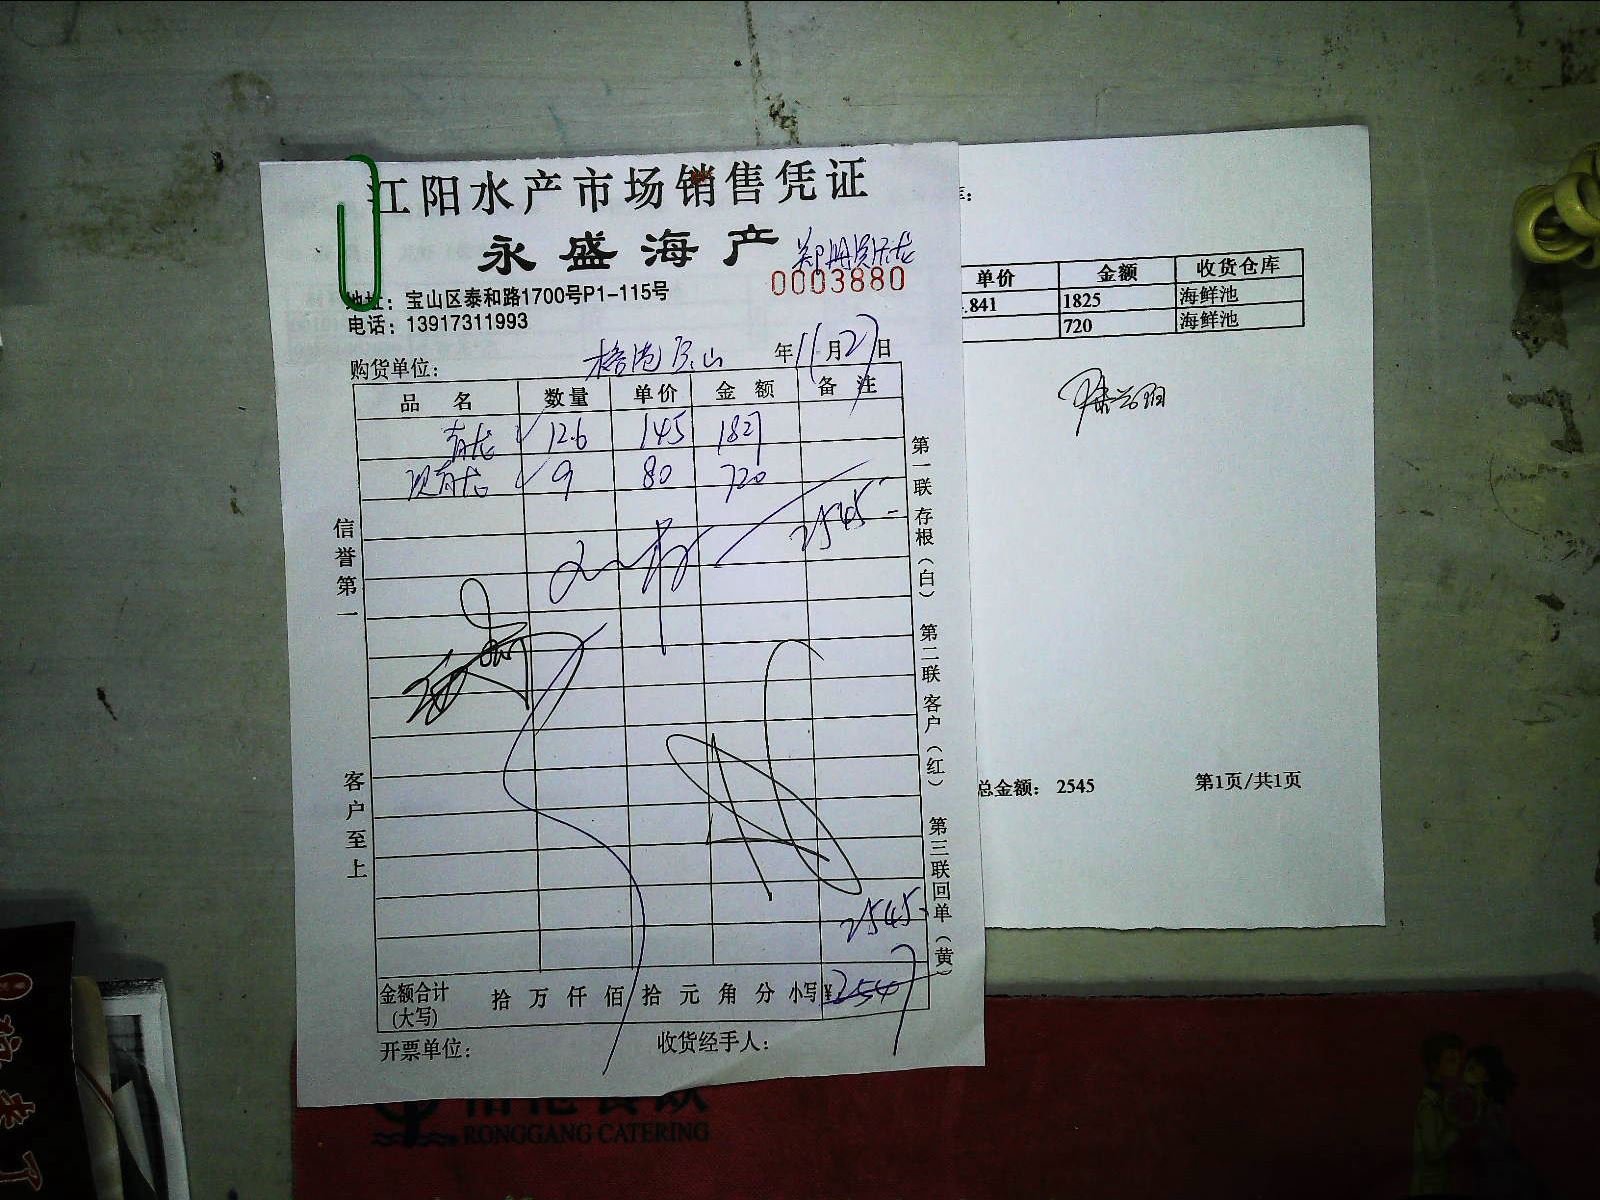 江阳水产市场销售凭证
永盛海产
0003880
地址：宝山区泰和路1700号P1-115号
电话：13917311993
购货单位： 年 11 月 27 日
品 名 数量 单价 金 额 备 注
青龙 12.6 145 1827
青龙 9 80 720
2545-
2545-
金额合计(大写) 拾 万 仟 佰 拾 元 角 分 小写¥ 2547
开票单位： 收货经手人：
信誉第一
客户至上
第一联 存根（白） 第二联 客户（红） 第三联 回单（黄）
单价 金额 收货仓库
.841 1825 海鲜池
720 海鲜池
总金额： 2545 第1页/共1页
RONGGANG CATERING